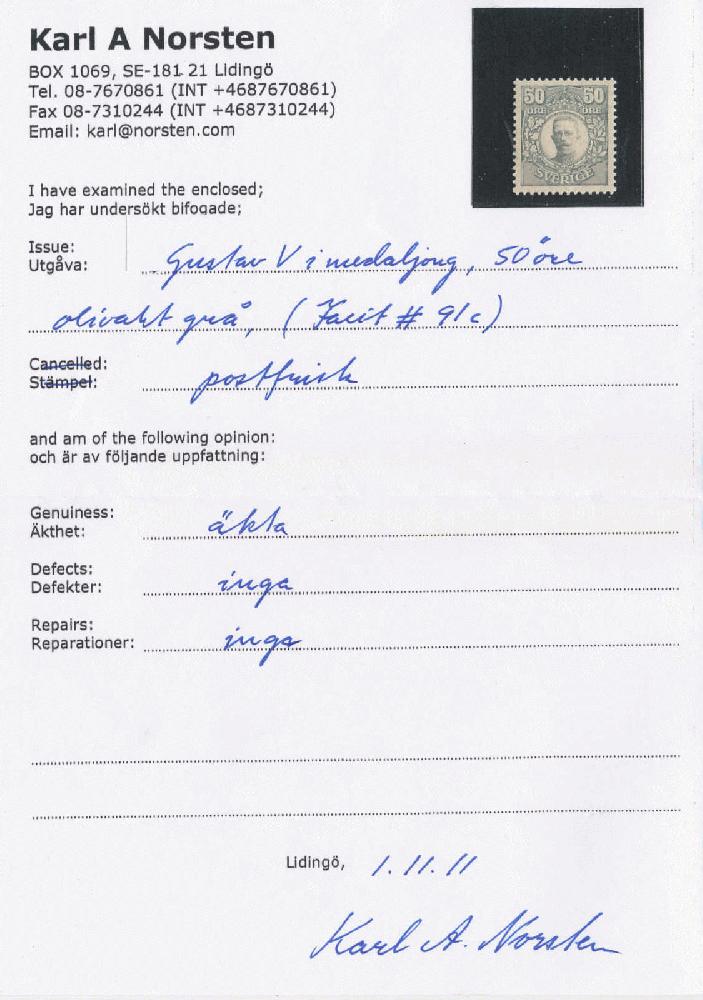 Karl A Norsten
BOX 1069, SE-181 21 Lidingö
Tel. 08-7670861 (INT +4687670861)
Fax 08-7310244 (INT +4687310244)
Email: karl@norsten.com
50 50
ÖRE ÖRE
SVERIGE
I have examined the enclosed;
Jag har undersökt bifogade;
Issue:
Utgåva: Gustav V i medaljong, 50 öre
olivakt grå, (Facit # 91c)
Cancelled:
Stämpel: postfrisk
and am of the following opinion:
och är av följande uppfattning:
Genuiness:
Äkthet: äkta
Defects:
Defekter: inga
Repairs:
Reparationer: inga
Lidingö, 1.11.11
Karl A. Norsten